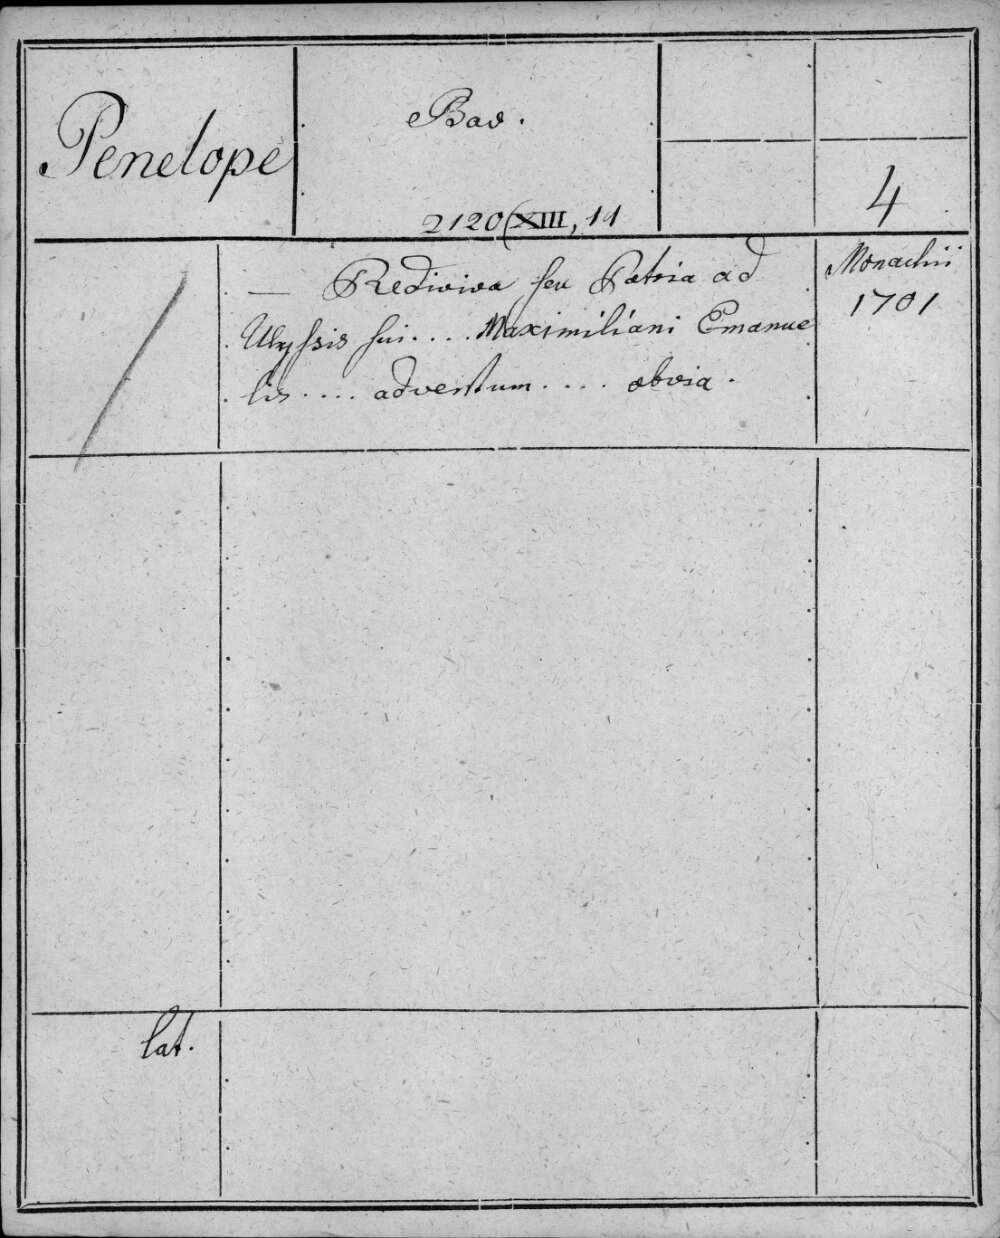 Penelope
Bav.
2120 (XIII, 11
4
— Rediviva seu Patria ad
Ulyssis sui .... Maximiliani Emanue
lis .... adventum .... obvia.
Monachii
1701
lat.